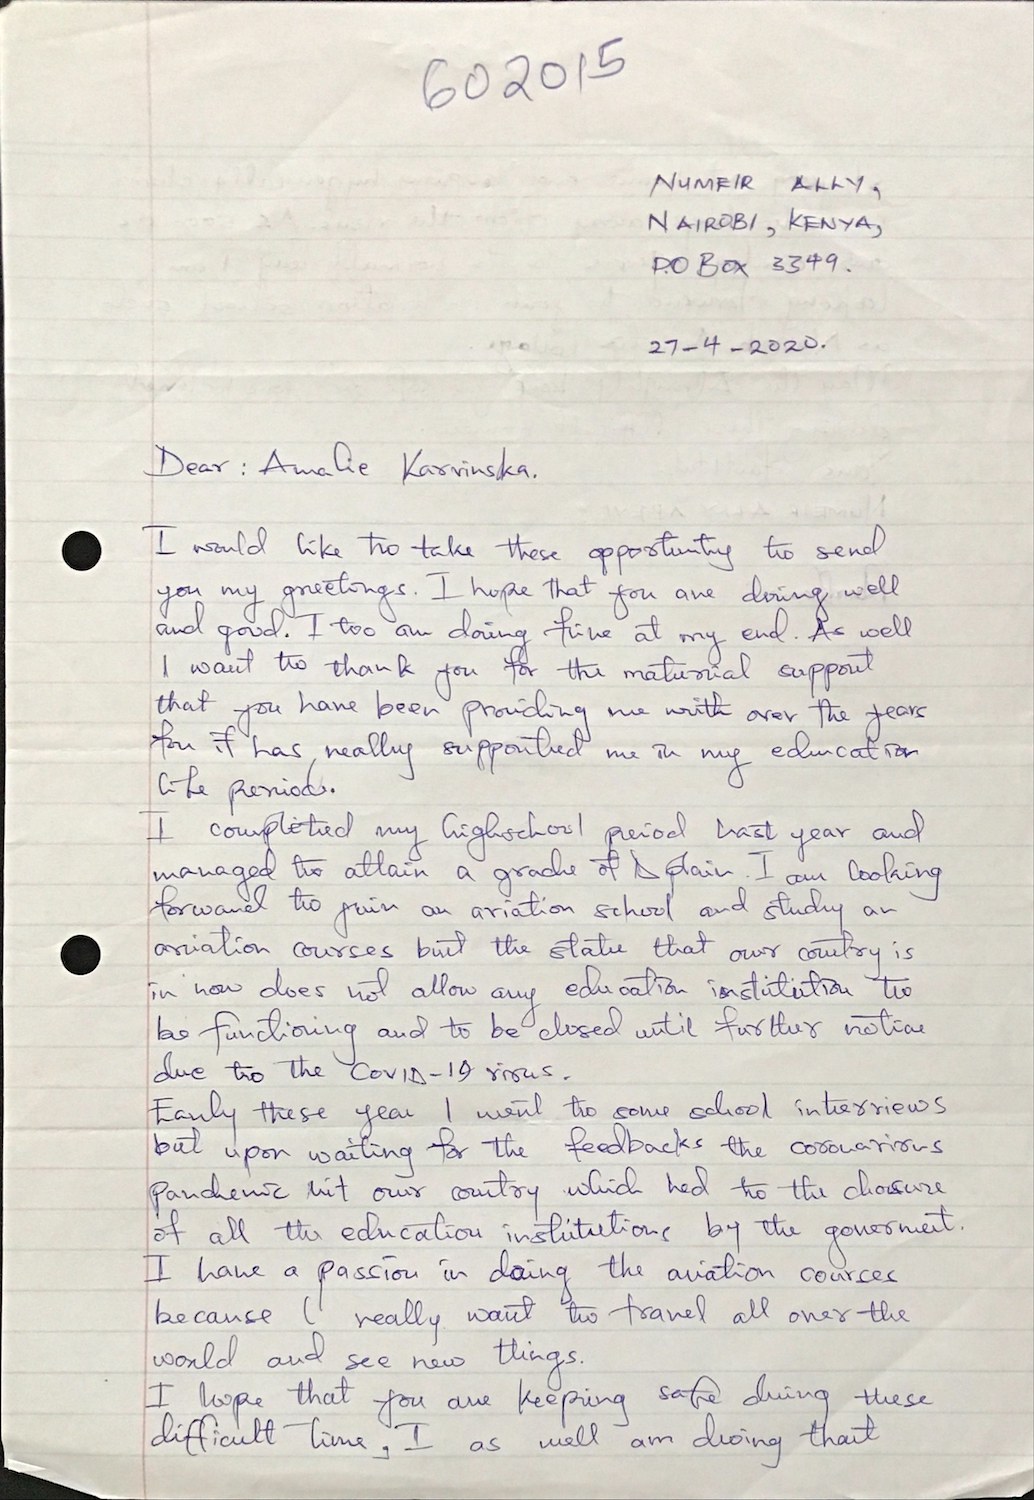 602015
NUMEIR ALLY,
NAIROBI, KENYA,
P.O Box 3349.
27-4-2020.
Dear: Amalie Karvinska.
I would like to take these opportunity to send
you my greetings. I hope that you are doing well
and good. I too am doing fine at my end. As well
I want to thank you for the material support
that you have been providing me with over the years
for it has really supported me in my education
life period.
I completed my highschool period last year and
managed to attain a grade of D plain. I am looking
forward to join an aviation school and study an
aviation courses but the state that our coutry is
in now does not allow any education institution to
be functioning and to be closed until further notice
due to the COVID-19 virus.
Early these year I went to some school interviews
but upon waiting for the feedbacks the coronavirus
pandemic hit our coutry which led to the closure
of all the education institutions by the goverment.
I have a passion in doing the aviation courses
because I really want to travel all over the
world and see new things.
I hope that you are keeping safe during these
difficult time, I as well am doing that